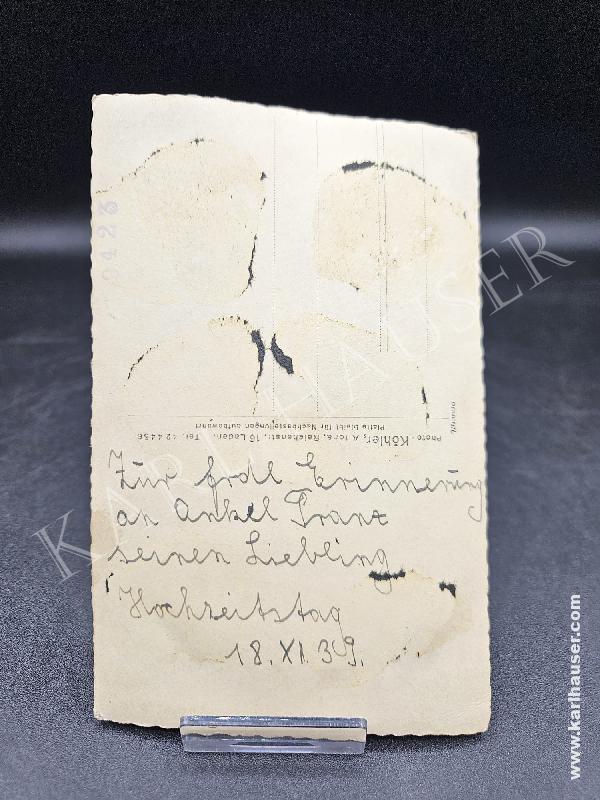 9423
Photo-Köhler, Altona, Reichenstr. 10 Laden. Tel. 424456
Platte bleibt für Nachbestellungen aufbewahrt
Zur frdl Erinnerung
an Onkel Franz
seinen Liebling
Hochzeitstag
18. XI. 39.
KARL HAUSER
www.karlhauser.com